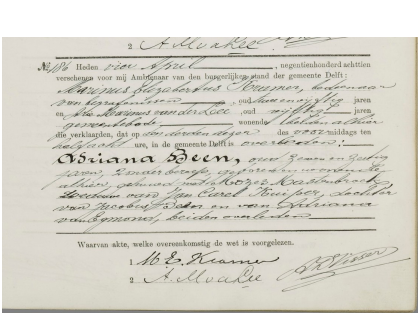 2. A. M. v. d. Lee
No. 186 Heden vier April, negentienhonderd achttien
verschenen voor mij Ambtenaar van den burgerlijken stand der gemeente Delft:
Marinus Elizabertus Kramer, bedienaar
van begrafenissen, oud jaren
en Marinus van der Lee oud vijftig jaren
gemeentebode wonende beiden alhier
die verklaarden, dat op den derden dezer des voormiddags ten
half acht ure, in de gemeente Delft is overleden:
Adriana Been, oud zeven en zestig
jaren, zonder beroep, geboren en wonende
alhier, gehuwd met
weduwe van Jan Carel Kuijper, dochter
van Jacobus Been en van Adriana
van Egmond, beiden overleden
Waarvan akte, welke overeenkomstig de wet is voorgelezen.
1. M. E. Kramer
2 A. M. v. d. Lee